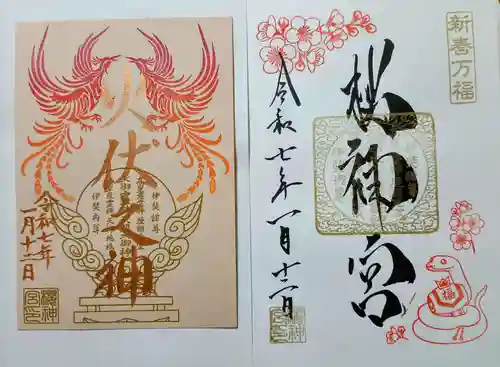 火伏之神
令和七年
一月十二日
伊弉諾尊
伊弉冉尊
櫻神宮印
新春万福
令和七年一月十二日
櫻神宮
福